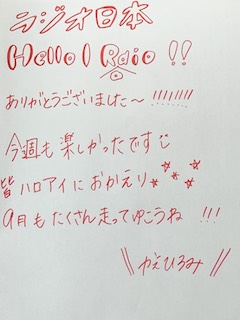 ラジオ日本
Hello I Raio !!
ありがとうございました〜 !!!!!!!!
今週も楽しかったです
皆ハロアイにおかえり
9月もたくさん走ってゆこうね !!!
\\ かえひろみ //